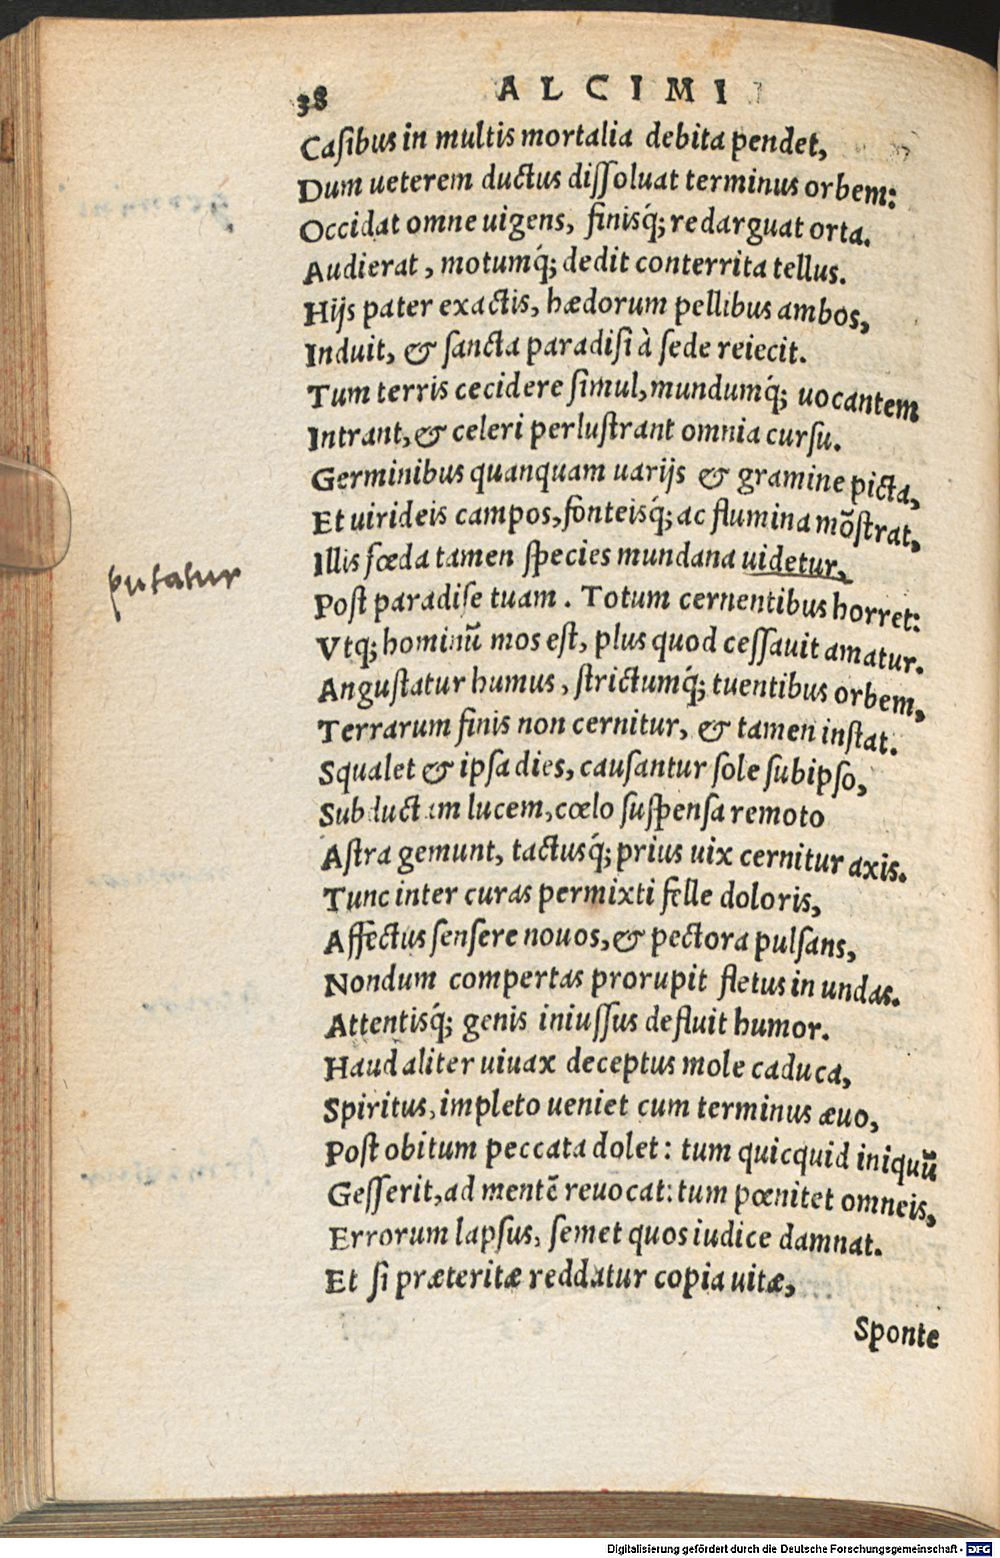 38 ALCIMI
Casibus in multis mortalia debita pendet,
Dum ueterem ductus dissoluat terminus orbem:
Occidat omne uigens, finisq́; redarguat orta.
Audierat, motumq́; dedit conterrita tellus.
Hijs pater exactis, hædorum pellibus ambos,
Induit, & sancta paradisi à sede reiecit.
Tum terris cecidere simul, mundumq́; uocantem
Intrant, & celeri perlustrant omnia cursu.
Germinibus quanquam uarijs & gramine picta,
Et uirideis campos, fonteisq́; ac flumina mõstrat,
Illis fœda tamen species mundana uidetur,
putatur
Post paradise tuam. Totum cernentibus horret:
Vtq; hominũ mos est, plus quod cessauit amatur.
Angustatur humus, strictumq́; tuentibus orbem,
Terrarum finis non cernitur, & tamen instat.
Squalet & ipsa dies, causantur sole sub ipso,
Subductam lucem, cœlo suspensa remoto
Astra gemunt, tactusq́; prius uix cernitur axis.
Tunc inter curas permixti felle doloris,
Affectus sensere nouos, & pectora pulsans,
Nondum compertas prorupit fletus in undas.
Attentisq́; genis iniussus defluit humor.
Haud aliter uiuax deceptus mole caduca,
Spiritus, impleto ueniet cum terminus æuo,
Post obitum peccata dolet: tum quicquid iniquũ
Gesserit, ad mentẽ reuocat: tum pœnitet omneis,
Errorum lapsus, semet quos iudice damnat.
Et si præteritæ reddatur copia uitæ,
Sponte
Digitalisierung gefördert durch die Deutsche Forschungsgemeinschaft - DFG